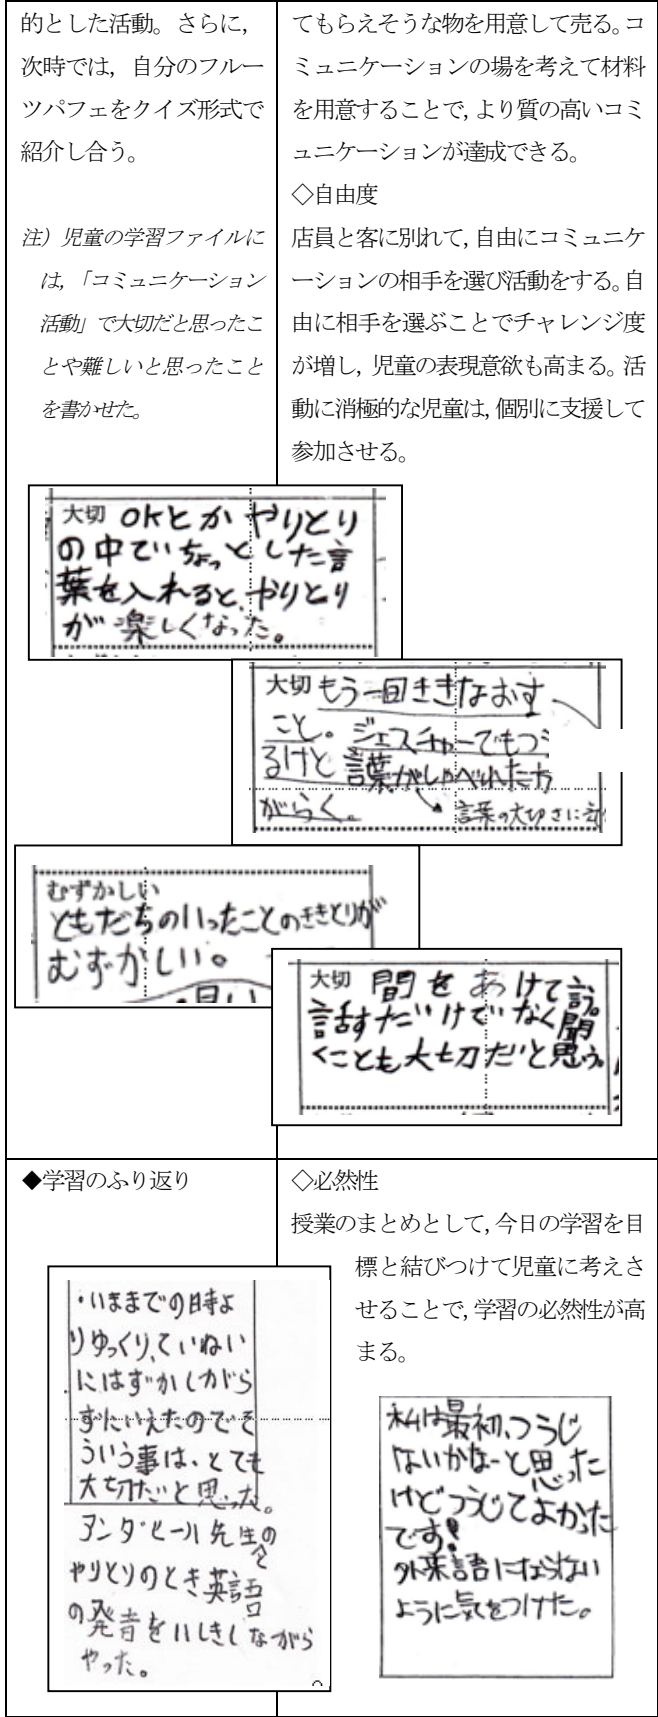 的とした活動。さらに,
次時では, 自分のフルー
ツパフェをクイズ形式で
紹介し合う。
注）児童の学習ファイルに
は, 「コミュニケーション
活動」で大切だと思ったこ
とや難しいと思ったこと
を書かせた。
てもらえそうな物を用意して売る。コ
ミュニケーションの場を考えて材料
を用意することで, より質の高いコミ
ュニケーションが達成できる。
◇自由度
店員と客に別れて, 自由にコミュニケ
ーションの相手を選び活動をする。自
由に相手を選ぶことでチャレンジ度
が増し, 児童の表現意欲も高まる。活
動に消極的な児童は, 個別に支援して
参加させる。
大切 OKとか やりとり
の中でいちょっとした言
葉を入れると、やりとり
が楽しくなった。
大切 もう一回ききなおす
こと。ジェスチャーでもつ
るけど 言葉がしゃべれた方
がらく。 言葉の大切さに
むずかしい
ともだちのいったことのききとりが
むずかしい。
大切 間をあけて言う。
話すだけでなく聞
くことも大切だと思う。
◆学習のふり返り
・いままでの時よ
りゆっくり、ていねい
にはずかしがら
ずにいえたのでそ
ういう事は、とても
大切だと思った。
アンダヒール先生のと
やりとりのとき英語
の発音をいしきしながら
やった。
◇必然性
授業のまとめとして, 今日の学習を目
標と結びつけて児童に考えさ
せることで, 学習の必然性が高
まる。
私は最初、つうじ
ないかなーと思った
けどつうじてよかった
です!
外来語にならない
ように気をつけた。